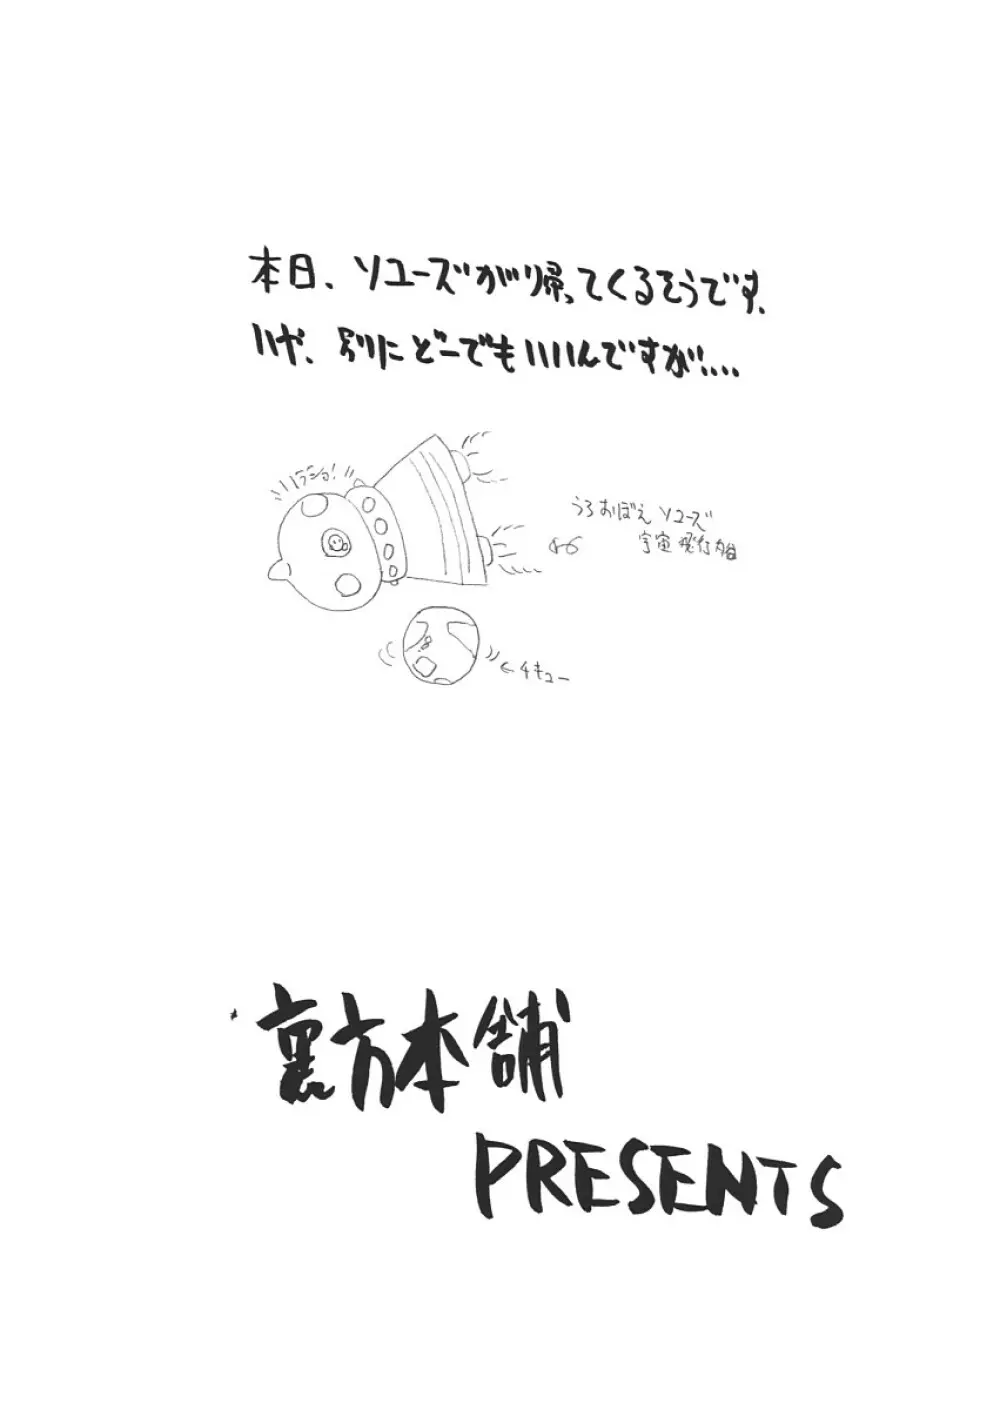 本日、ソユーズが帰ってくるそうです、
いや、別にどーでもいいんですが....
ハラショ!
うろおぼえ ソユーズ
宇宙飛行
←チキュー
裏方本舗
PRESENTS